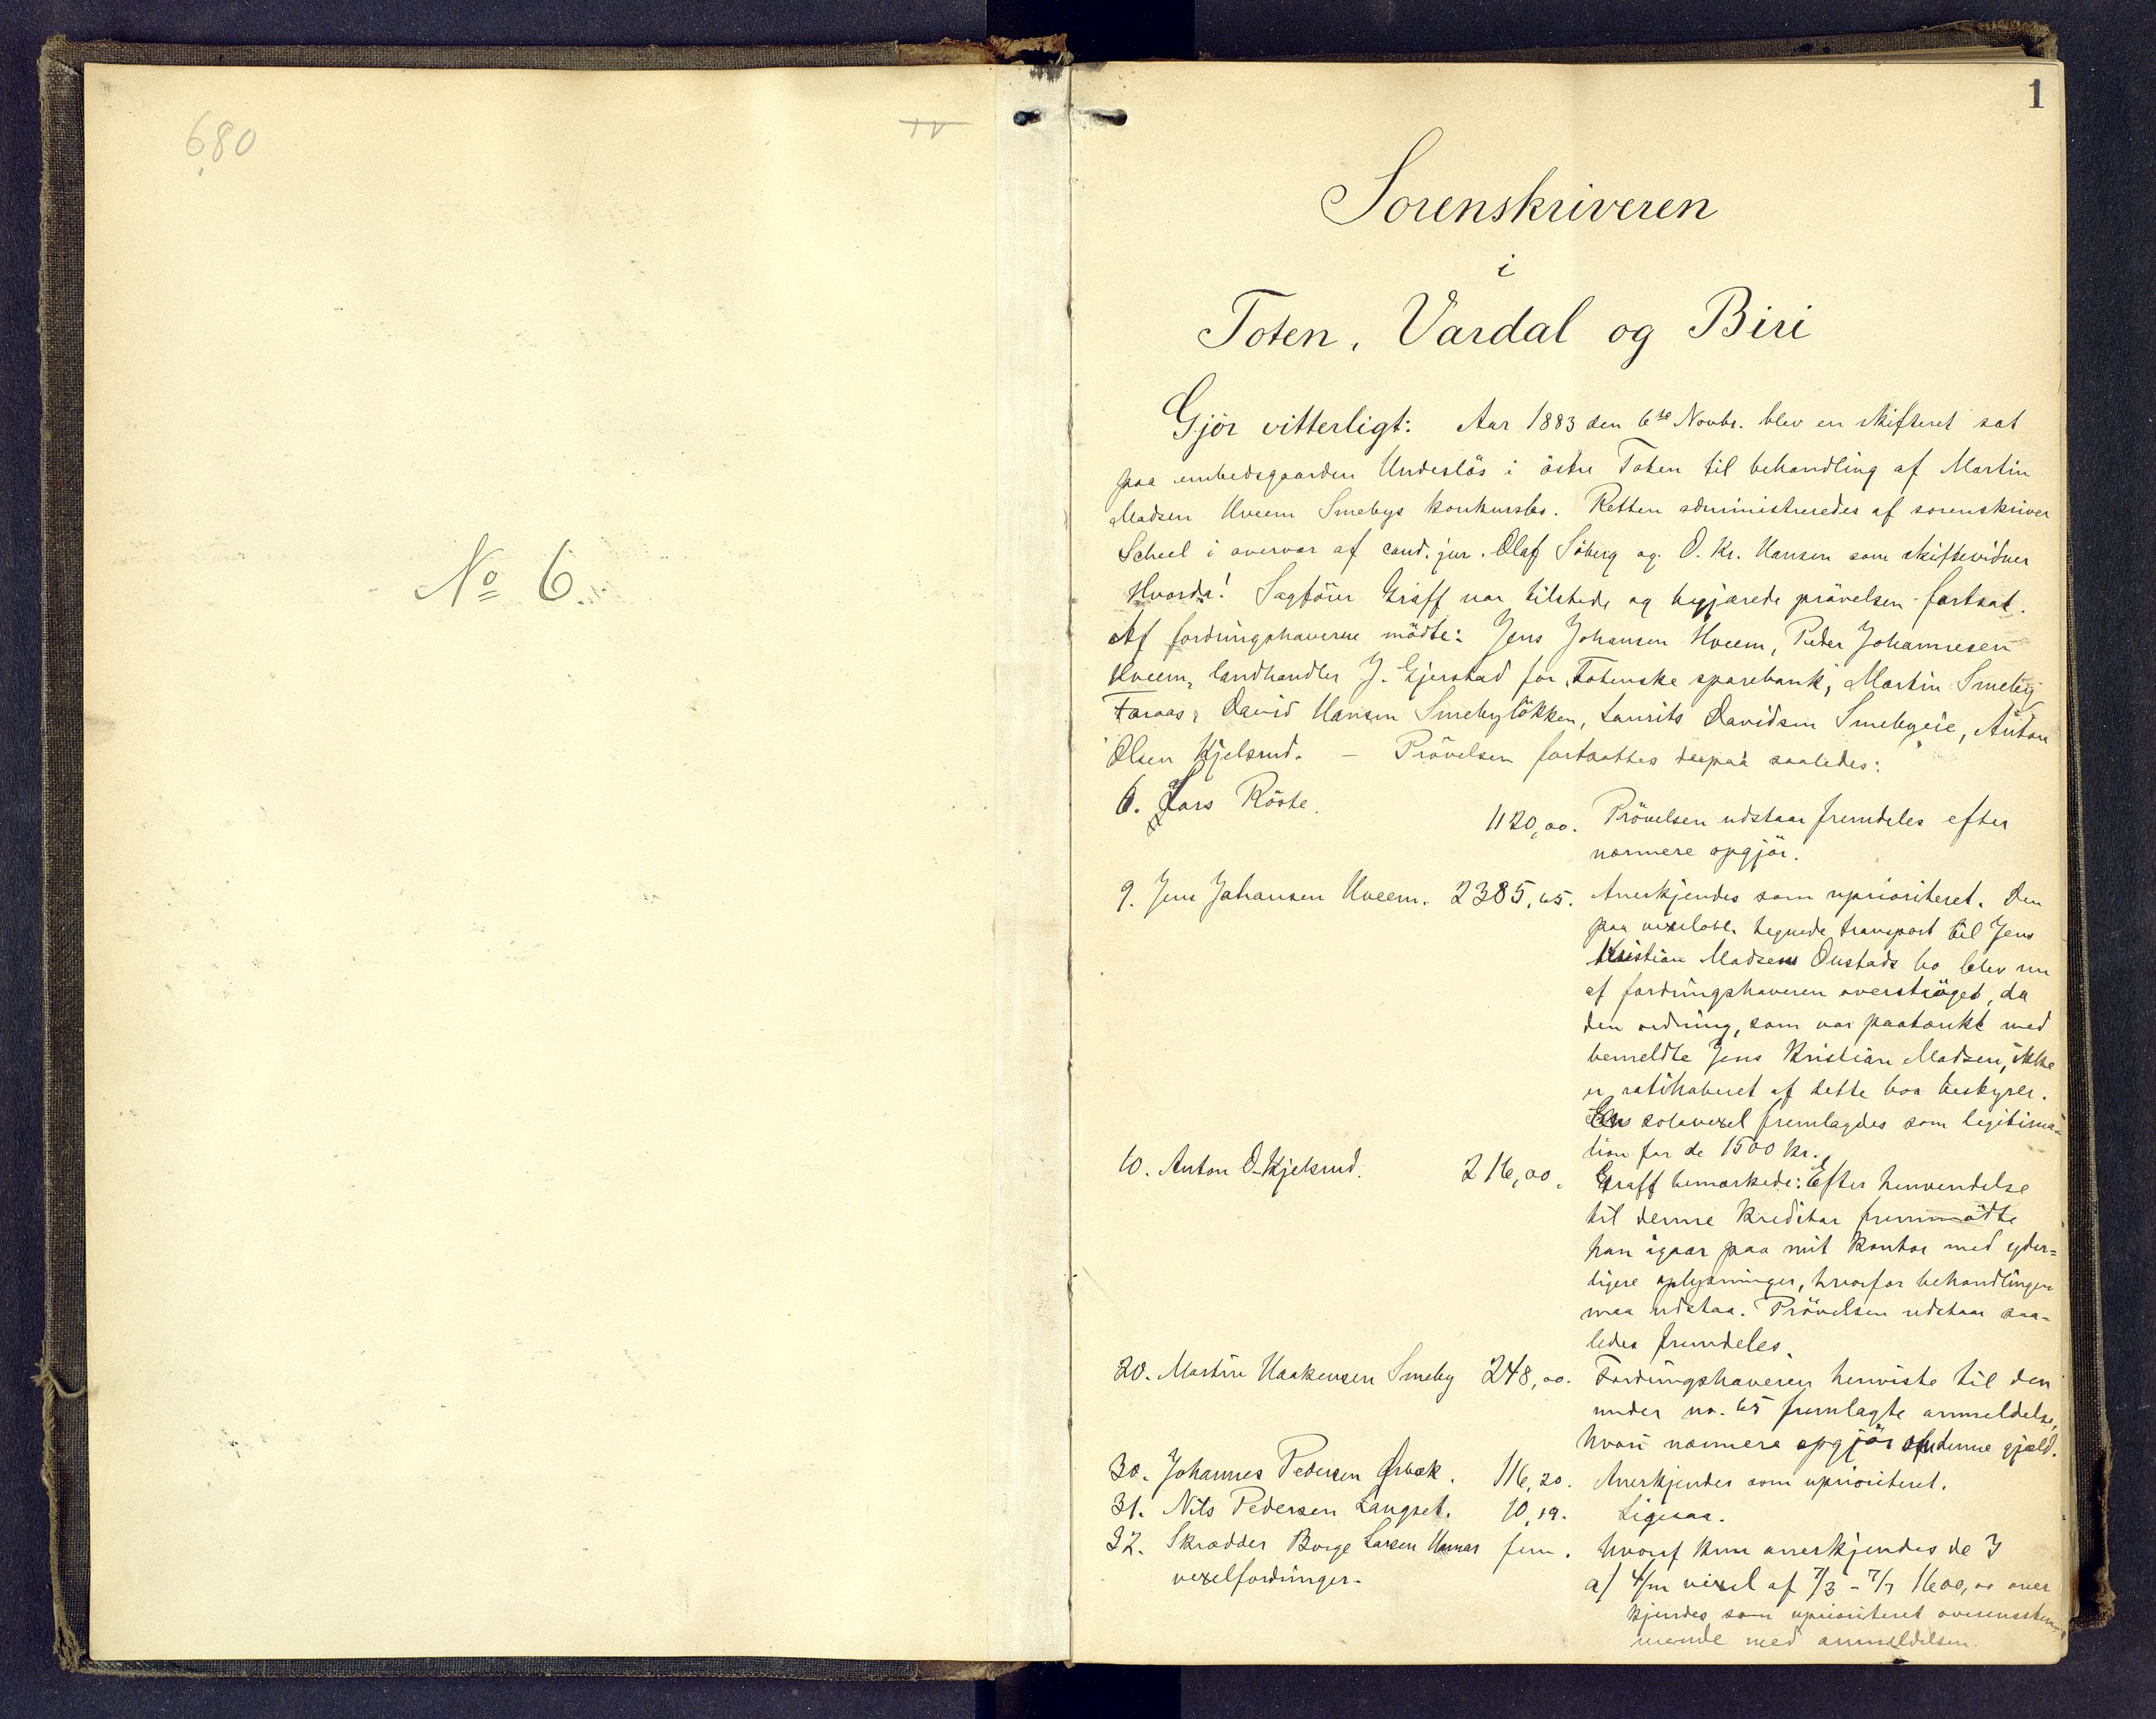 680
IV
No 6.
1
Sorenskriveren
i
Toten, Vardal og Biri
Gjör vitterligt: Aar 1883 den 6te Novbr. blev en skifteret sat
paa embedsgaarden Undeslös i östre Toten til behandling af Martin
Madsen Hveem Smebys konkursbo. Retten administreredes af sorenskriver
Scheel i overvær af cand. jur. Olaf Söberg og O. Kr. Hansen som skiftevidner
Hvorda! Sagförer Graff var tilstede og begjærede prövelsen fortsat.
Af fordringshaverne mödte: Jens Johansen Hveem, Peder Johannesen
Hveem, landhandler J. Gjerstad for Totenske sparebank, Martin Smeby
Faraas, David Hansen Smebylökken, Laurits Davidsen Smebyeie, Anton
Olsen Kjelsrud. — Prövelsen fortsattes derpaa saaledes:
6. Lars Röste. 1120,00. Prövelsen udstaar fremdeles efter
nærmere opgjör.
9. Jens Johansen Hveem. 2385,65. Anerkjendes som uprioriteret. Den
paa vexelobl. tegnede transport til Jens
Kristian Madsens Onstads bo blev nu
af fordringshaveren overströget, da
den ordning, som var paatænkt med
bemeldte Jens Kristian Madsen, ikke
er ratihaberet af dette boa bestyrer.
En solavexel fremlagdes som legitima-
tion for de 1500 kr.
10. Anton O. Kjelsrud. 216,00. Graff bemærkede: Efter henvendelse
til denne kreditor fremmödte
han igaar paa mit kontor med yder-
ligere oplysninger, hvorfor behandlingen
maa udstaa. Prövelsen udstaar saa-
ledes fremdeles.
20. Martin Haakensen Smeby 248,00. Fordringshaveren henviste til den
under no. 65 fremlagte anmeldelse,
hvori nærmere opgjör af denne gjæld.
30. Johannes Pedersen 116,20. Anerkjendes som uprioriteret.
31. Nils Pedersen Langset. 10,19. Ligesaa.
32. Skrædder Borge Larsen Hamar fem. hvoraf kun anerkjendes de 3
vexelfordringer. a/ 4/m vexel af 7/3 - 7/7 1600,00 aner
kjendes som uprioriteret overensstem
mende med anmeldelsen.